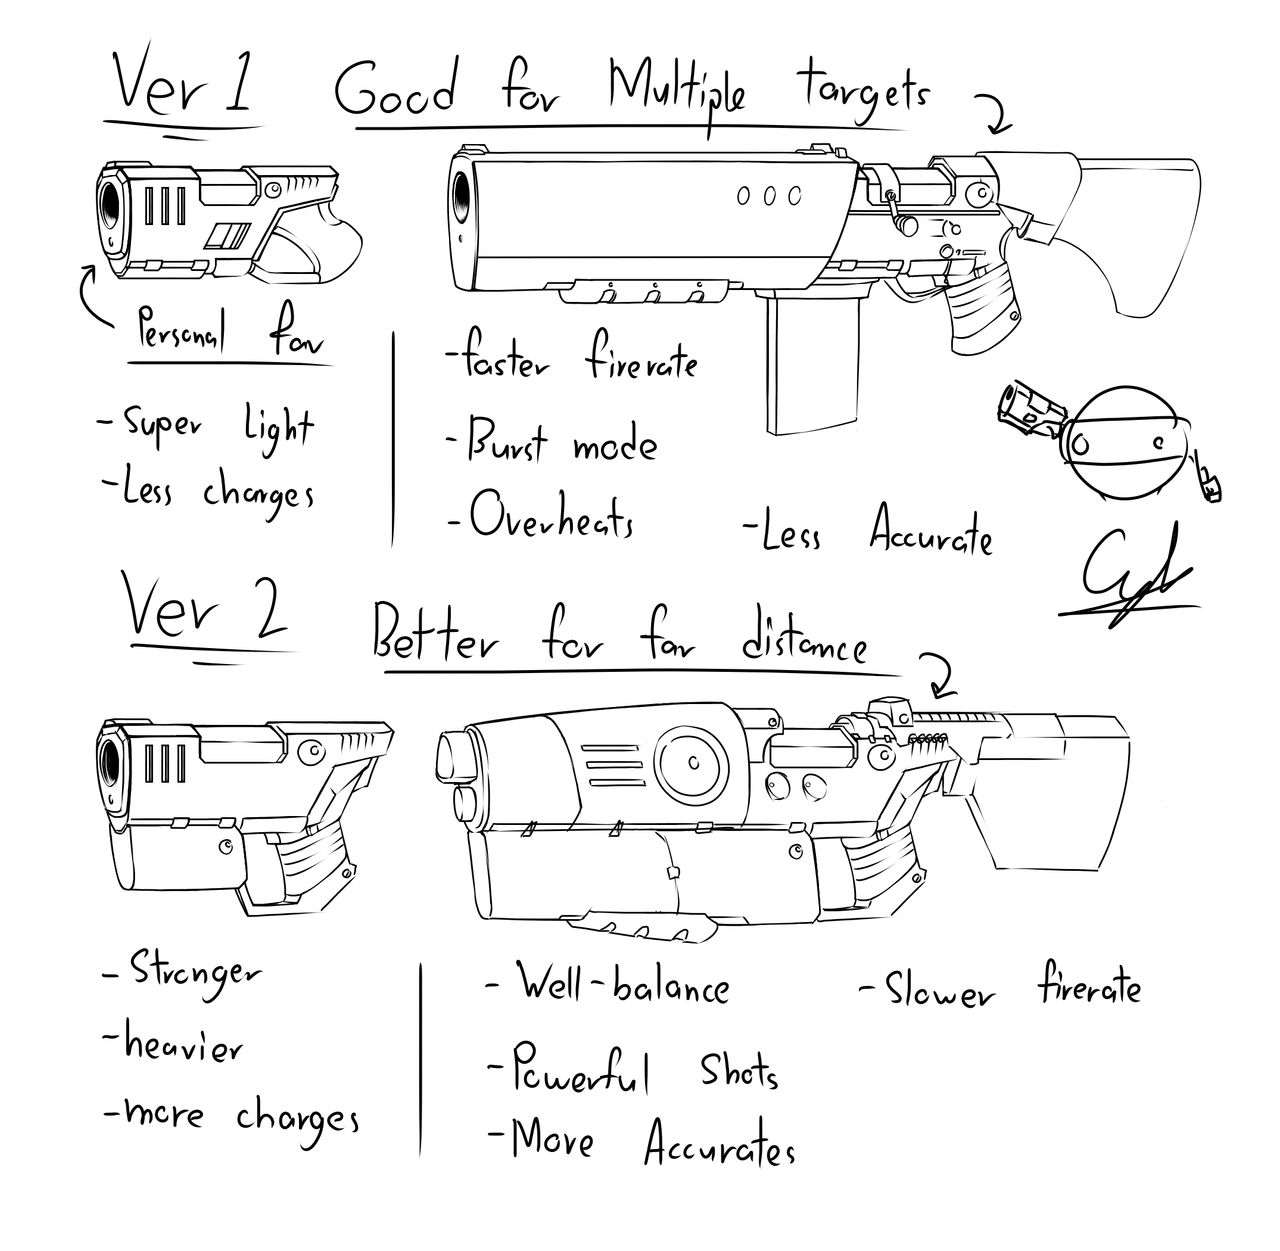 Ver 1
Good for Multiple targets
Personal fav
- Super Light
- Less charges
- faster firerate
- Burst mode
- Overheats
- Less Accurate
Ver 2
Better for far distance
- Stronger
- heavier
- more charges
- Well-balance
- Powerful Shots
- More Accurates
- Slower firerate